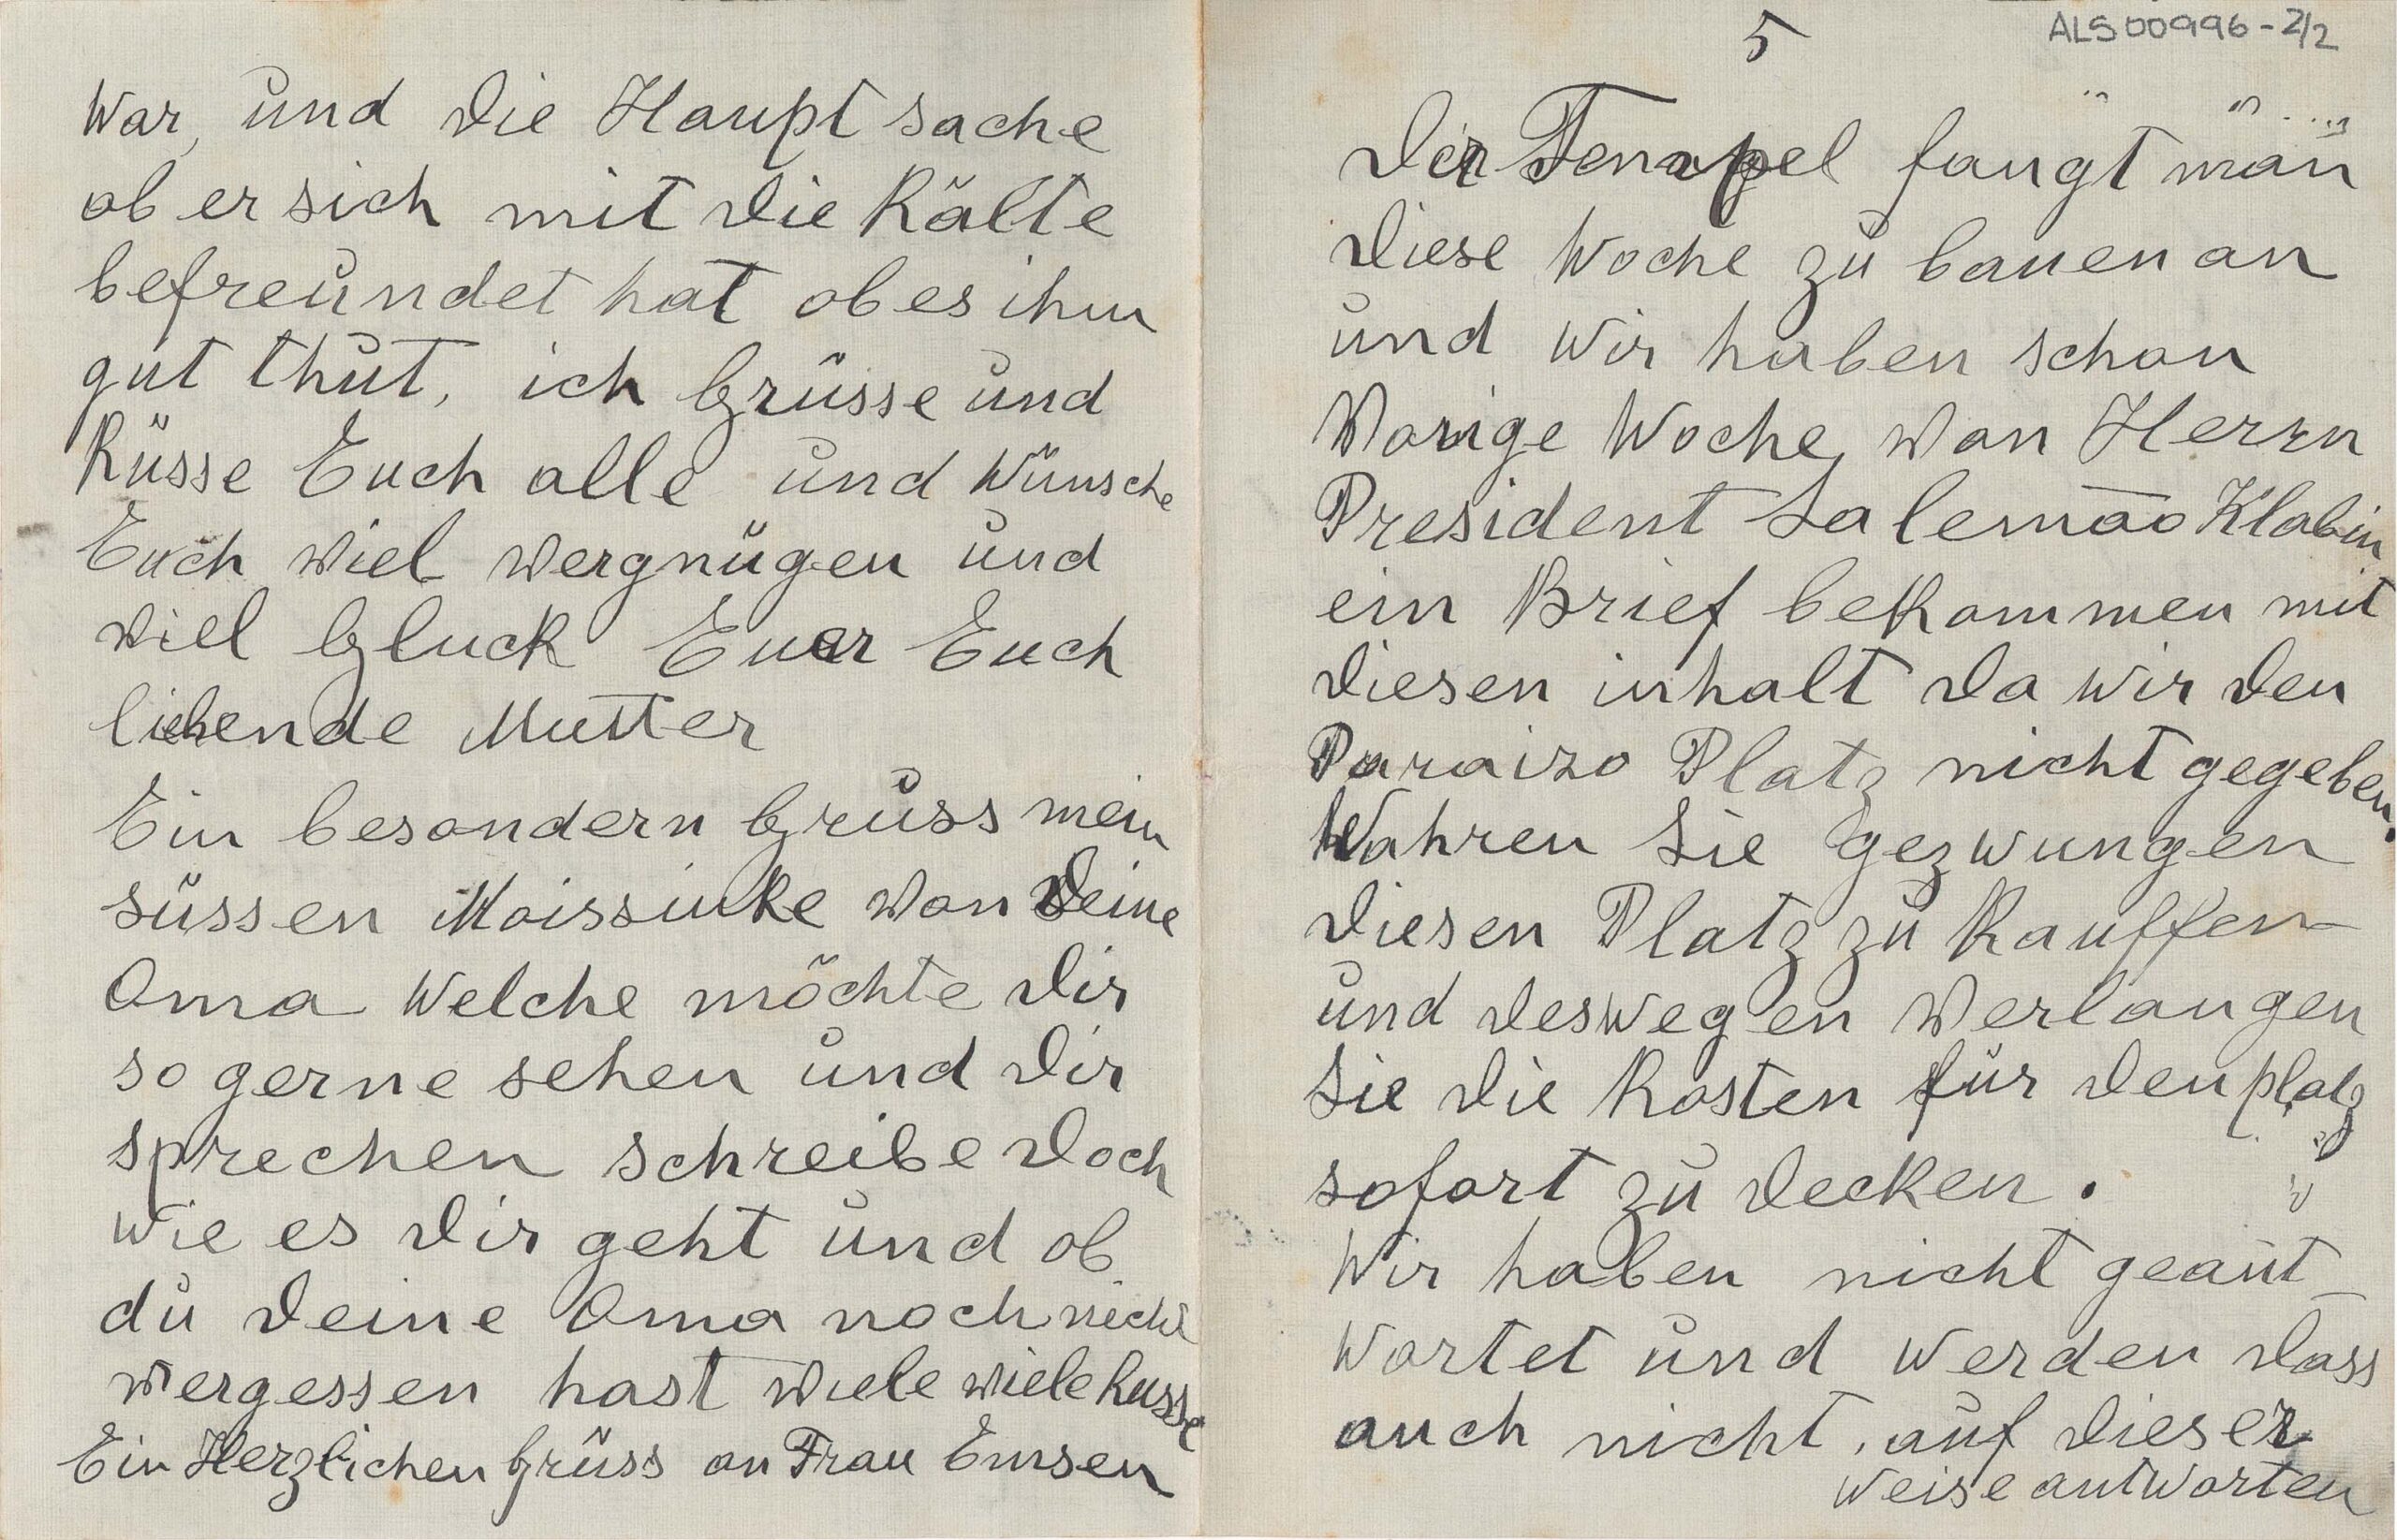 War, und die Haupt sache
ob er sich mit die Kälte
befreundet hat ob es ihm
gut thut, ich Grüsse und
Küsse Euch alle und Wünsche
Euch Viel Vergnügen und
Viel Gluck Euer Euch
liebende Mutter
Ein besondern Gruss mein
süssen Moissinke Von Deine
Oma Welche möchte Dir
so gerne sehen und Dir
sprechen schreibe Doch
Wie es Dir geht und ob
du Deine Oma noch nicht
Vergessen hast Viele Viele Kusse
Ein Herzlichen Grüss an Frau Emsen
ALS00996-2/2
5
Der Tempel fängt män
Diese Woche zu bauen an
und Wir haben schon
Vorige Woche, Von Herrn
President Salemão Klabin
ein Brief bekommen mit
Diesen inhalt Da Wir Den
Paraizo Platz nicht gegeben.
Wahren Sie gezwungen
Diesen Platz zu Kauffen
und Deswegen Verlangen
Sie Die Kosten für Den platz
sofort zu Decken.
Wir haben nicht geant
Wortet und Werden Dass
auch nicht, auf Dieser
Weise antworten